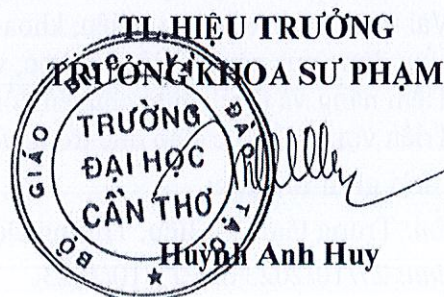 TL.HIỆU TRƯỞNG
TRƯỞNG KHOA SƯ PHẠM
BỘ GIÁO DỤC VÀ ĐÀO TẠO
TRƯỜNG
ĐẠI HỌC
CẦN THƠ
Huỳnh Anh Huy